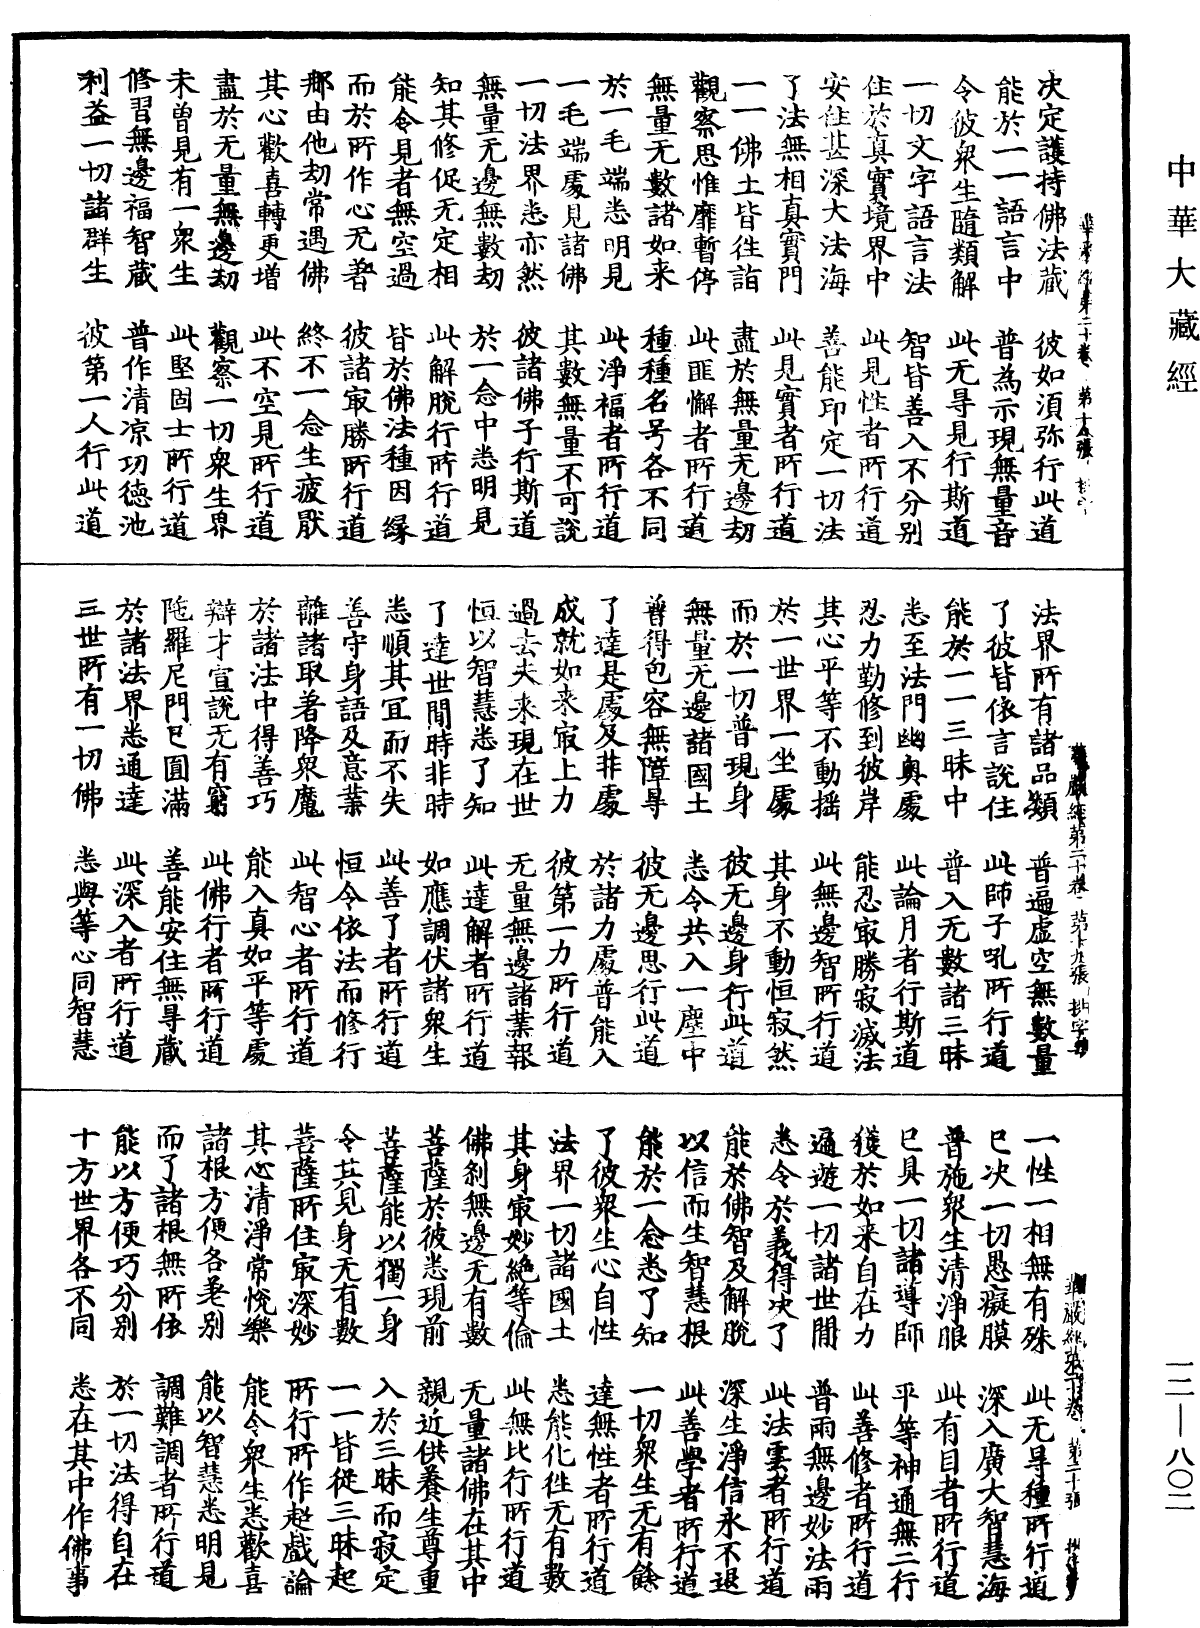 中華大藏經
決定護持佛法蔵　彼如須弥行此道
能於一一語言中　普為示現無量音
令彼衆生隨類解　此无㝵見行斯道
一切文字語言法　智皆善入不分别
住於真實境界中　此見性者所行道
安住甚深大法海　善能印定一切法
了法無相真實門　此見實者所行道
一一佛土皆往詣　盡於無量无邊劫
觀察思惟靡暫停　此匪懈者所行道
無量无數諸如来　種種名号各不同
於一毛端悉明見　此淨福者所行道
一毛端處見諸佛　其數無量不可說
一切法界悉亦然　彼諸佛子行斯道
無量无邊無數劫　於一念中悉明見
知其修促无定相　此解脫行所行道
能令見者無空過　皆於佛法種因縁
而於所作心无著　彼諸㝡勝所行道
那由他劫常遇佛　終不一念生疲猒
其心歡喜轉更增　此不空見所行道
盡於无量無邊劫　觀察一切衆生界
未曾見有一衆生　此堅固士所行道
修習無邊福智蔵　普作清凉功德池
利益一切諸群生　彼第一人行此道
華嚴經第二十卷　第十八張
法界所有諸品類　普遍虚空無數量
了彼皆依言說住　此師子吼所行道
能於一一三昧中　普入无數諸三昧
悉至法門幽奧處　此論月者行斯道
忍力勤修到彼岸　能忍㝡勝寂滅法
其心平等不動揺　此無邊智所行道
於一世界一坐處　其身不動恒寂然
而於一切普現身　彼无邊身行此道
無量无邊諸國土　悉令共入一塵中
普得包容無障㝵　彼无邊思行此道
了達是處及非處　於諸力處普能入
成就如来㝡上力　彼第一力所行道
過去未来現在世　无量無邊諸業報
恒以智慧悉了知　此達解者所行道
了達世間時非時　如應調伏諸衆生
悉順其冝而不失　此善了者所行道
善守身語及意業　恒令依法而修行
離諸取著降衆魔　此智心者所行道
於諸法中得善巧　能入真如平等處
辯才宣說无有窮　此佛行者所行道
陁羅尼門已圓滿　善能安住無㝵蔵
於諸法界悉通達　此深入者所行道
三世所有一切佛　悉與等心同智慧
華嚴經第二十卷　第十九張
一性一相無有殊　此无㝵種所行道
已决一切愚癡膜　深入廣大智慧海
普施衆生清淨眼　此有目者所行道
已具一切諸導師　平等神通無二行
獲於如来自在力　此善修者所行道
遍遊一切諸世間　普雨無邊妙法雨
悉令於義得决了　此法雲者所行道
能於佛智及解脫　深生淨信永不退
以信而生智慧根　此善學者所行道
能於一念悉了知　一切衆生无有餘
了彼衆生心自性　達無性者所行道
法界一切諸國土　悉能化往无有數
其身㝡妙絶等倫　此無比行所行道
佛刹無邊无有數　无量諸佛在其中
菩薩於彼悉現前　親近供養生尊重
菩薩能以獨一身　入於三昧而寂定
令其見身无有數　一一皆從三昧起
菩薩所住㝡深妙　所行所作超戲論
其心清淨常悅樂　能令衆生悉歡喜
諸根方便各差别　能以智慧悉明見
而了諸根無所依　調難調者所行道
能以方便巧分别　於一切法得自在
十方世界各不同　悉在其中作佛事
華嚴經第二十卷　第二十張
一二—八〇二